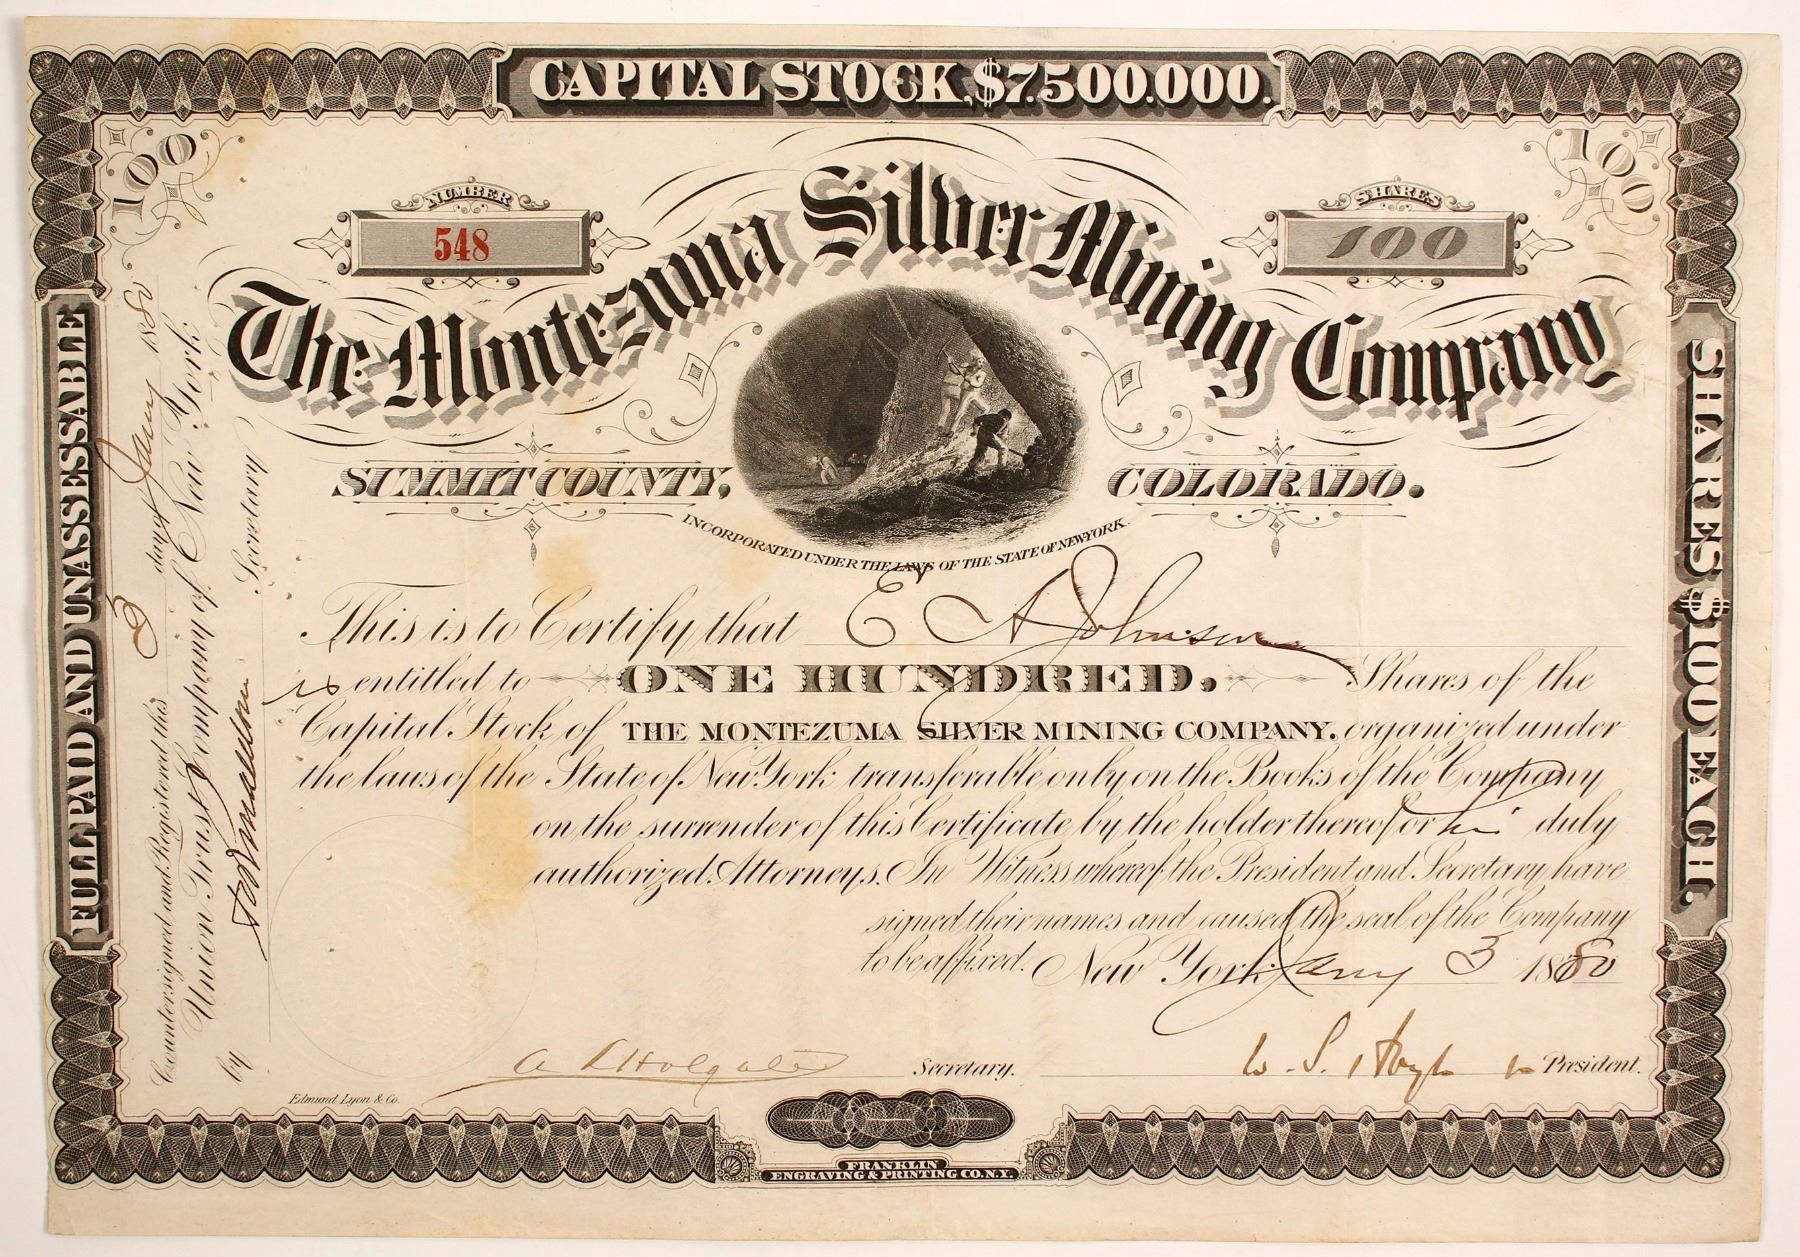 CAPITAL STOCK, $7.500.000.
100
100
NUMBER
548
SHARES
100
The Montezuma Silver Mining Company
SUMMIT COUNTY,
COLORADO.
INCORPORATED UNDER THE LAWS OF THE STATE OF NEW YORK.
This is to Certify that E A Johnson
is entitled to ONE HUNDRED. Shares of the
Capital Stock of THE MONTEZUMA SILVER MINING COMPANY. organized under
the laws of the State of New York transferable only on the Books of the Company
on the surrender of this Certificate by the holder thereof or his duly
authorized Attorneys. In Witness whereof the President and Secretary have
signed their names and caused the seal of the Company
to be affixed. New York, Jany 3 1880
Secretary.
W. S. Hoyt President.
Edmund Lyon & Co.
FRANKLIN
ENGRAVING & PRINTING CO. N.Y.
FULL PAID AND UNASSESSABLE
SHARES $100 EACH.
Countersigned and Registered this 3 day of Jany 1880
Union Trust Company of New York
by Secretary